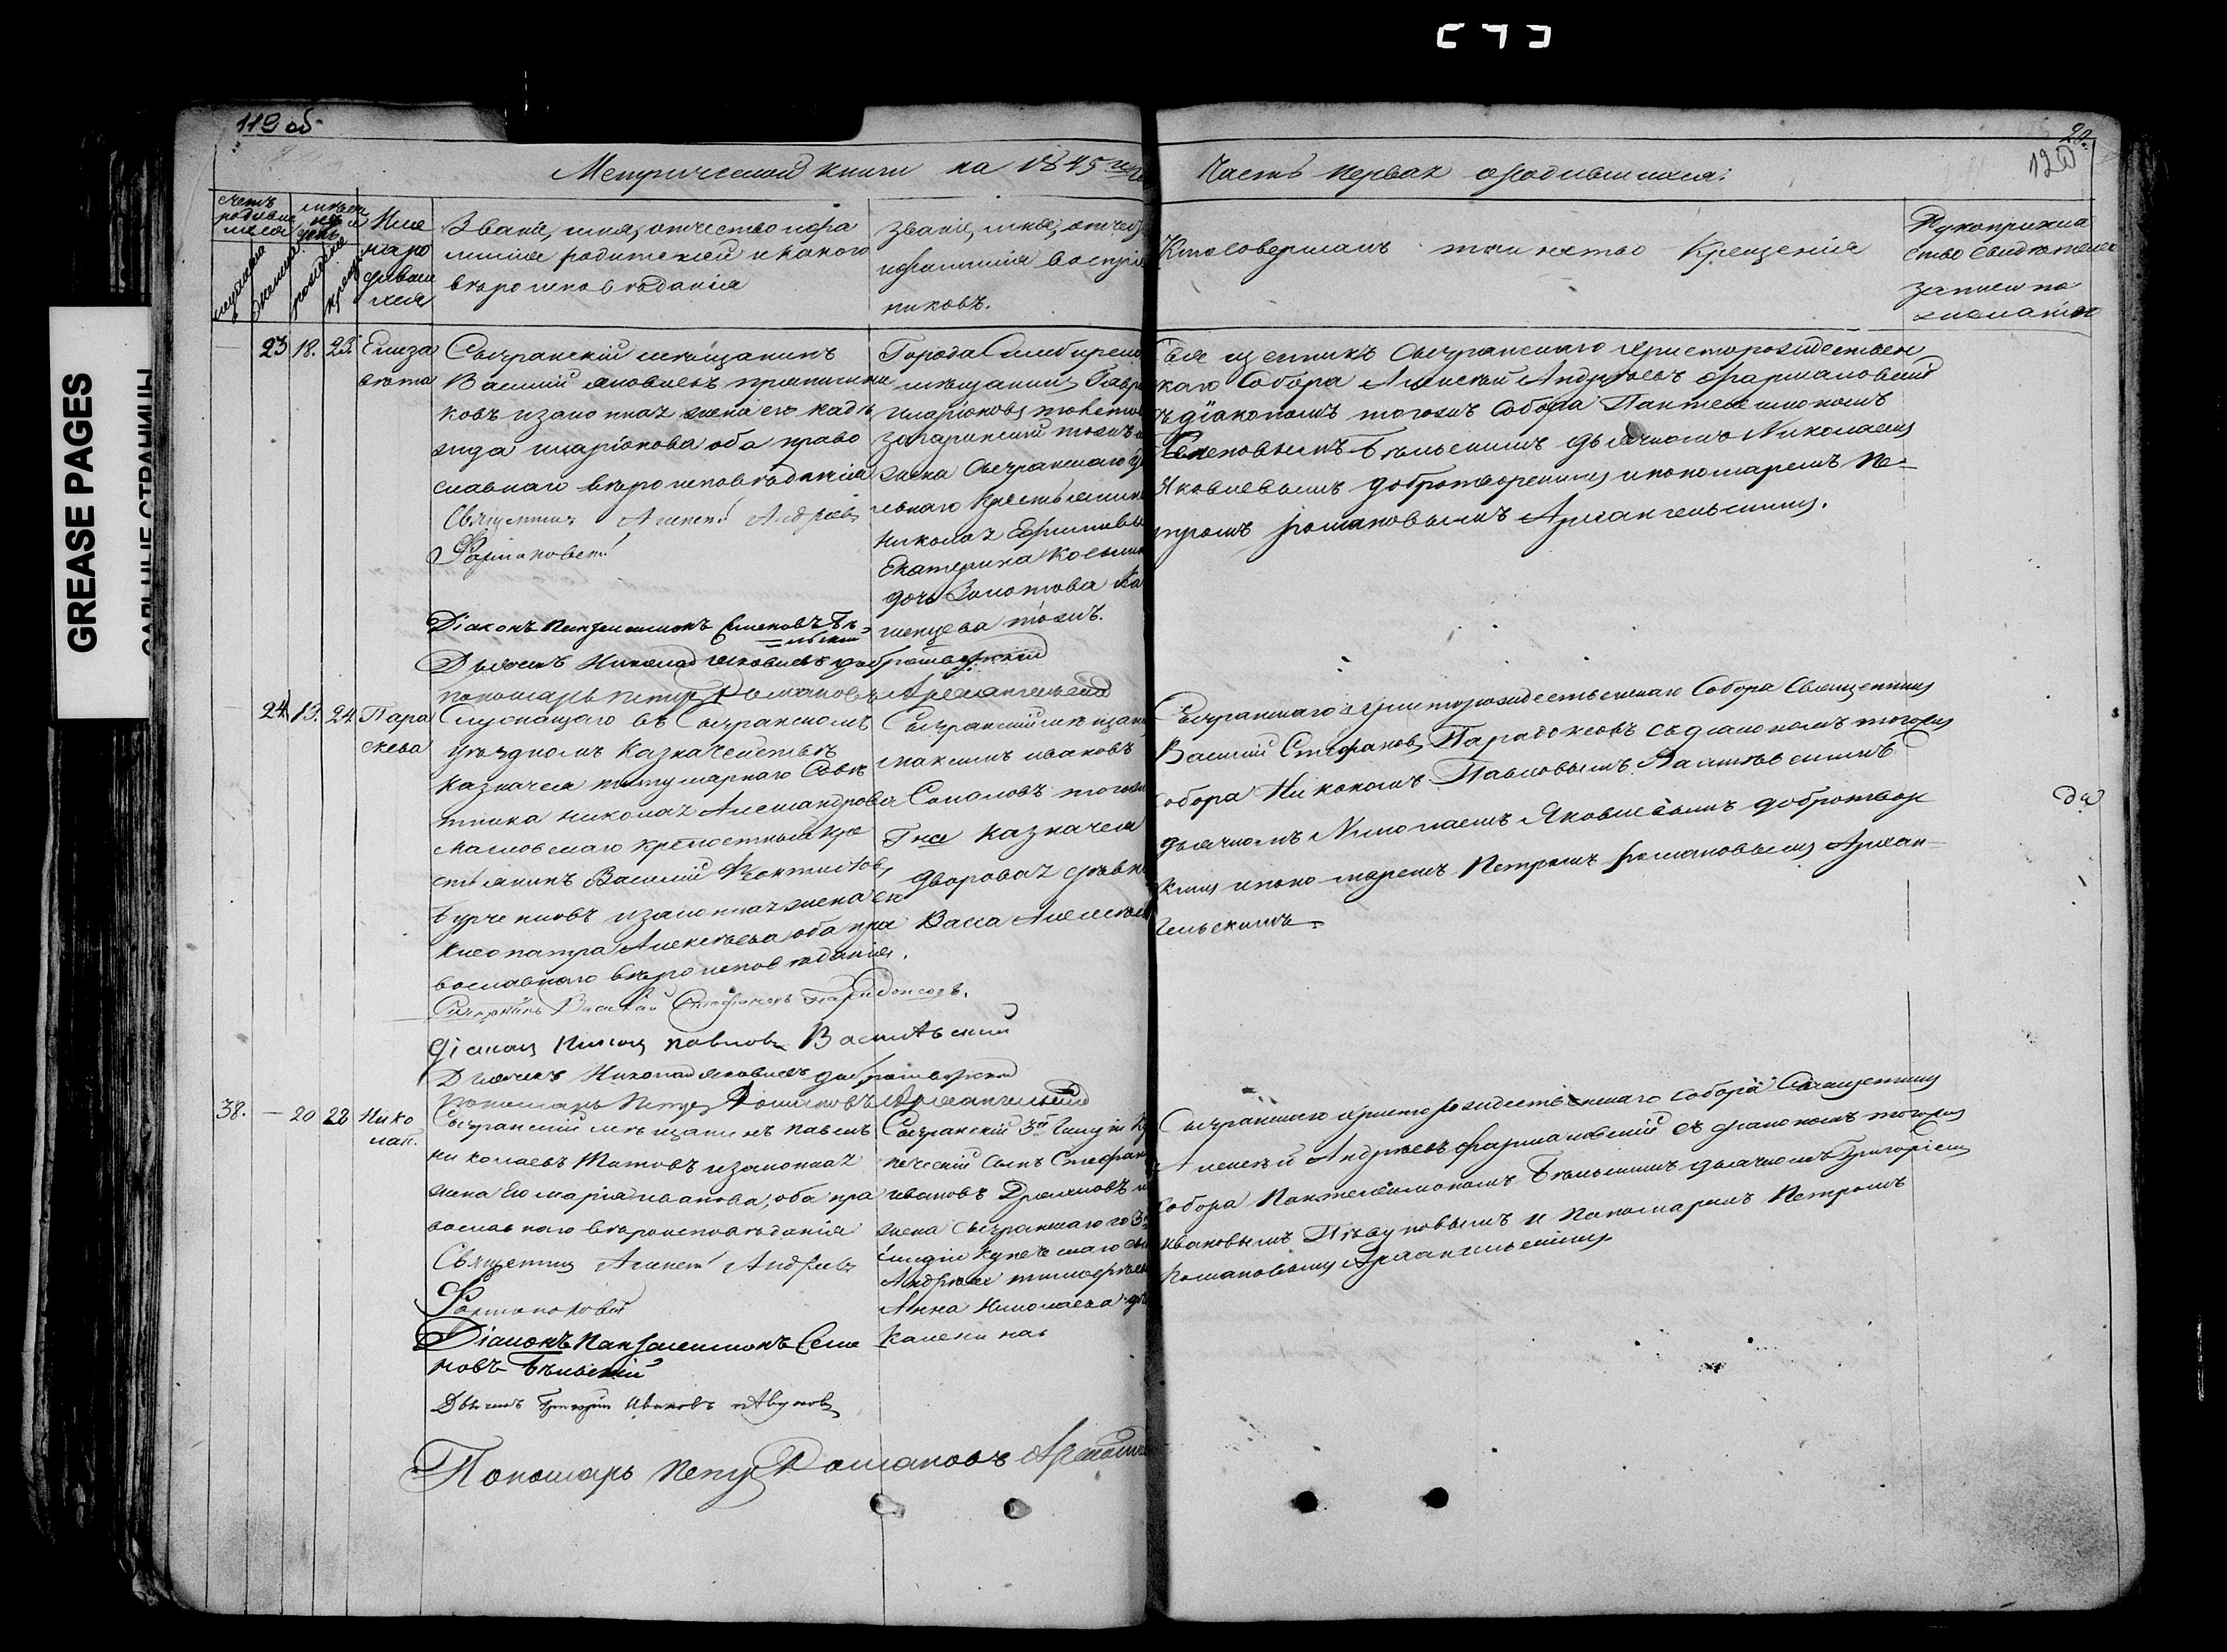 GREASE PAGES
119 об
20.
120
Метрической книги на 1845 го
Часть первая о родившихся:
счетъ родивших
мужеска
женска
рожденія
Имя
Званіе, имя, отчество и фа
милія родителей и какого
вѣроисповѣданія
званіе, имя, отчес
и фамилія воспріе
никовъ.
Кто совершалъ таинство Крещенія
Рукоприкла
ство свидѣтелей
записи по
желанію
23 18. 23. Елиза
вета
Сызранскій мѣщанинъ
Василій Яковлевъ
ковъ и законная жена его Надѣ
жда Иларіонова оба право
славнаго вѣроисповѣданія
Священникъ Алексѣй Андреевъ
Діаконъ Пантелеимонъ Семеновъ Бѣ
льскій
Дьячекъ Николай Яковлевъ Добротворскій
Пономарь Петръ Романовъ Архангельскій
Города Симбирс
мѣщанинъ Гавр
Иларіоновъ
жена Сызранскаго
льнаго крестьянин
Николая Ефимов
Екатерина Косьмин
дочь Золотова
Сызранскаго Христорождествен
каго Собора Алексѣй Андреевъ
діакономъ тогожъ Собора Пантелеимономъ
Семеновымъ Бѣльскимъ дьячкомъ Николаемъ
Яковлевымъ Добротворскимъ и пономаремъ Пе-
тромъ Романовымъ Архангельскимъ.
24. 13. 24. Пара
скева
Служащаго въ Сызранскомъ
уѣздномъ Казначействѣ
Казначея титулярнаго Совѣ
тника Николая Александрова
Масловскаго крѣпостный кре
стьянинъ Василій Феоктистовъ
и законная жена его
Клеопатра Алексѣева оба пра
вославнаго вѣроисповѣданія.
Священникъ Василій Стефановъ Парадоксовъ.
Діаконъ Никонъ Павловъ
Дьячекъ Николай Яковлевъ Добротворскій
Пономарь Петръ Романовъ Архангельскій
Сызранскій мѣщан
Максимъ Ивановъ
Соколовъ
Гна Казначея
дворовая дѣвк
Васса Алексѣев
Сызранскаго Христорождественскаго Собора Священникъ
Василій Стефановъ Парадоксовъ съ діакономъ тогожъ
Собора Никономъ Павловымъ
дьячкомъ Николаемъ Яковлевымъ Добротвор
скимъ и пономаремъ Петромъ Романовымъ Архан-
гельскимъ.
38. — 20 22 Нико
лай.
Сызранскій мѣщанинъ Павелъ
Николаевъ Титовъ и законная
жена его Марія Иванова, оба пра
вославнаго вѣроисповѣданія
Священникъ Алексѣй Андреевъ
Діаконъ Пантелеимонъ Семе
новъ Бѣльскій
Дьячекъ Григорій Ивановъ Пѣвуновъ
Пономарь Петръ Романовъ
Сызранскій 3й Гильдіи Ку
печескій Сынъ Стефан
Ивановъ
жена Сызранскаго 3й
Гильдіи купеческаго
Андрея Тимофѣев
Анна Николаева
Сызранскаго Христорождественскаго Собора Священникъ
Алексѣй Андреевъ съ діакономъ тогожъ
Собора Пантелеимономъ Бѣльскимъ дьячкомъ Григоріемъ
Ивановымъ Пѣвуновымъ и пономаремъ Петромъ
Романовымъ Архангельскимъ